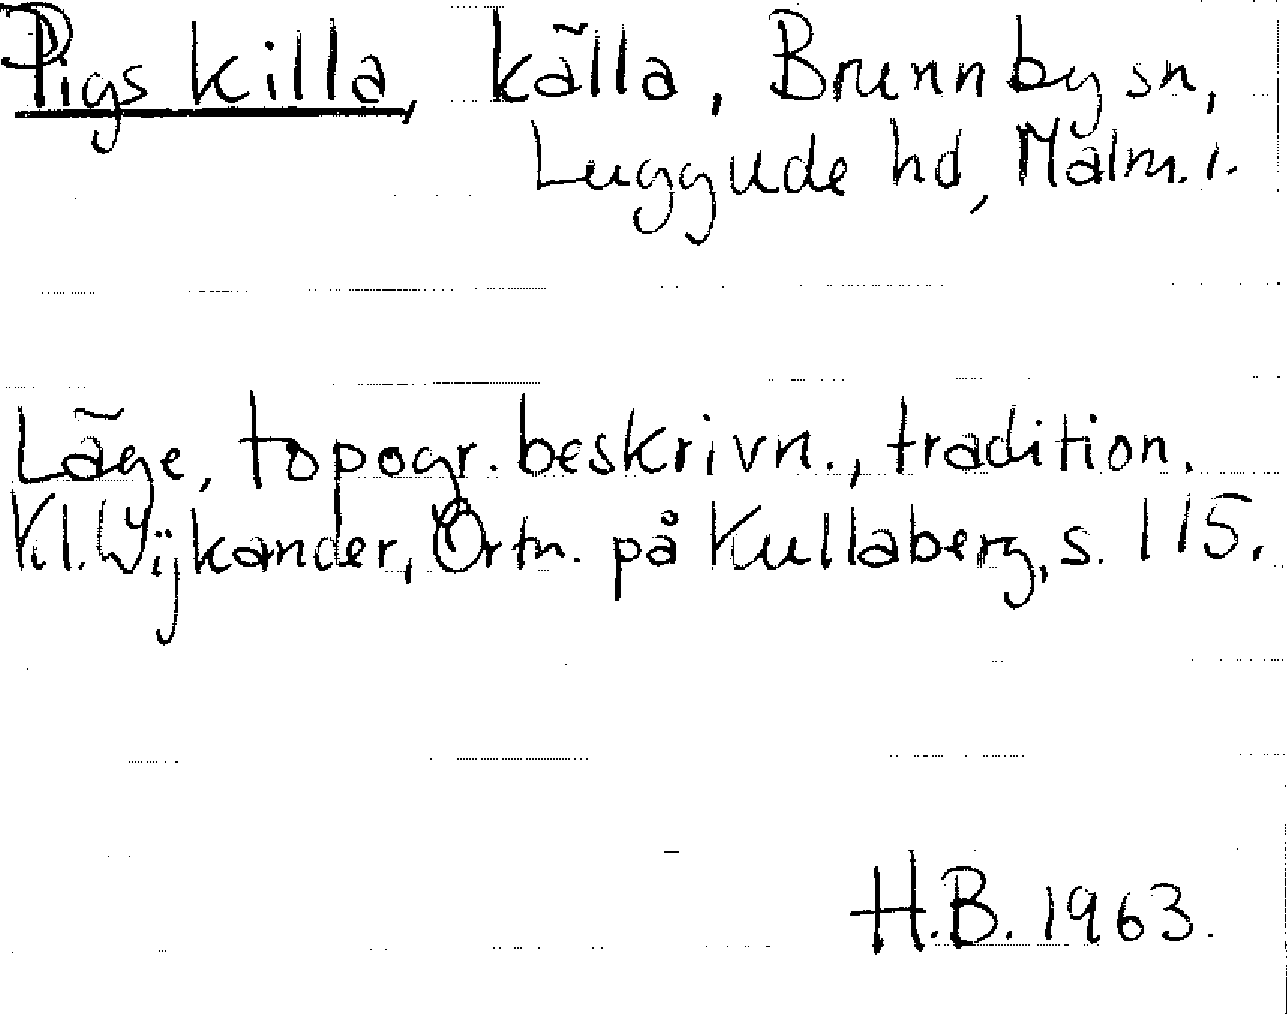 Pigs killa, källa, Brunnby sn,
Luggude hd, Malm. l.
Läge, topogr. beskrivn., tradition.
K.l. Wijkander, Ortn. på Kullaberg, s. 115.
H.B. 1963.